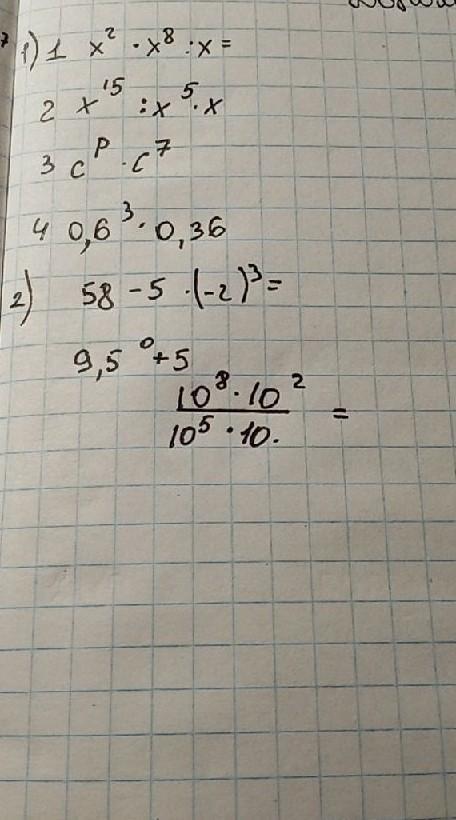 1) 1 x² · x⁸ : x =
2 x¹⁵ : x⁵ · x
3 cᵖ · c⁷
4 0,6³ · 0,36
2) 58 - 5 · (-2)³ =
9,5⁰ + 5
10⁸ · 10²
=
10⁵ · 10.